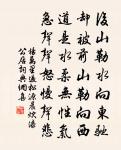 後山勒水向東馳
却被前山勒向西
道是水柔無性氣
急聲聲怒慢聲悲
楊萬里過松源晨炊漆
公店詞典網集